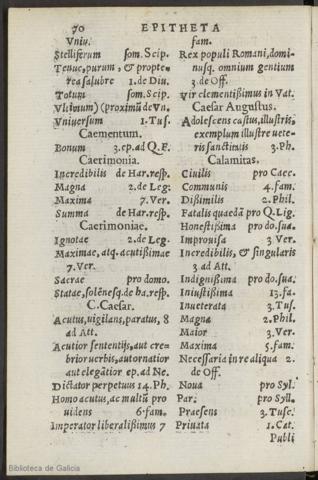 70 EPITHETA
Vniu.
Stelliferum som. Scip.
Tenue, purum, & propte=
rea salubre 1. de Diu.
Totum som. Scip.
Vltimum) (proximũ de Vn.
Vniuersum 1. Tus.
Caementum.
Bonum 3. ep. ad Q. F.
Caerimonia.
Incredibilis de Har. resp.
Magna 2. de Leg.
Maxima 7. Ver.
Summa de Har. resp.
Caerimoniae.
Ignotae 2. de Leg.
Maximae, atq. acutißimae
7. Ver.
Sacrae pro domo.
Statae, solẽnesq. de ha. resp.
C. Caesar.
Acutus, vigilans, paratus, 8
ad Att.
Acutior sententijs, aut cre=
brior verbis, aut ornatior
aut elegãtior ep. ad Ne.
Dictator perpetuus 14. Ph.
Homo acutus, ac multũ pro
uidens 6. fam.
Imperator liberalißimus 7
fam.
Rex populi Romani, domi=
nusq. omnium gentium
3. de Off.
Vir clementißimus in Vat.
Caesar Augustus.
Adolescens castus, illustris,
exemplum illustre uete=
ris sanctitatis 3. Ph.
Calamitas.
Ciuilis pro Caec.
Communis 4. fam.
Dißimilis 2. Phil.
Fatalis quaedã pro Q. Lig.
Honestißima pro do. sua.
Improuisa 3. Ver.
Incredibilis, & singularis
3 ad Att.
Indignißima pro do. sua.
Iniustißima 13. fa.
Inueterata 3. Tus.
Magna 2. Phil.
Maior 3. Ver.
Maxima 5. fam.
Necessaria in re aliqua 2.
de Off.
Noua pro Syl.
Par. pro Syll.
Praesens 3. Tusc.
Priuata 1. Cat.
Publi
Biblioteca de Galicia